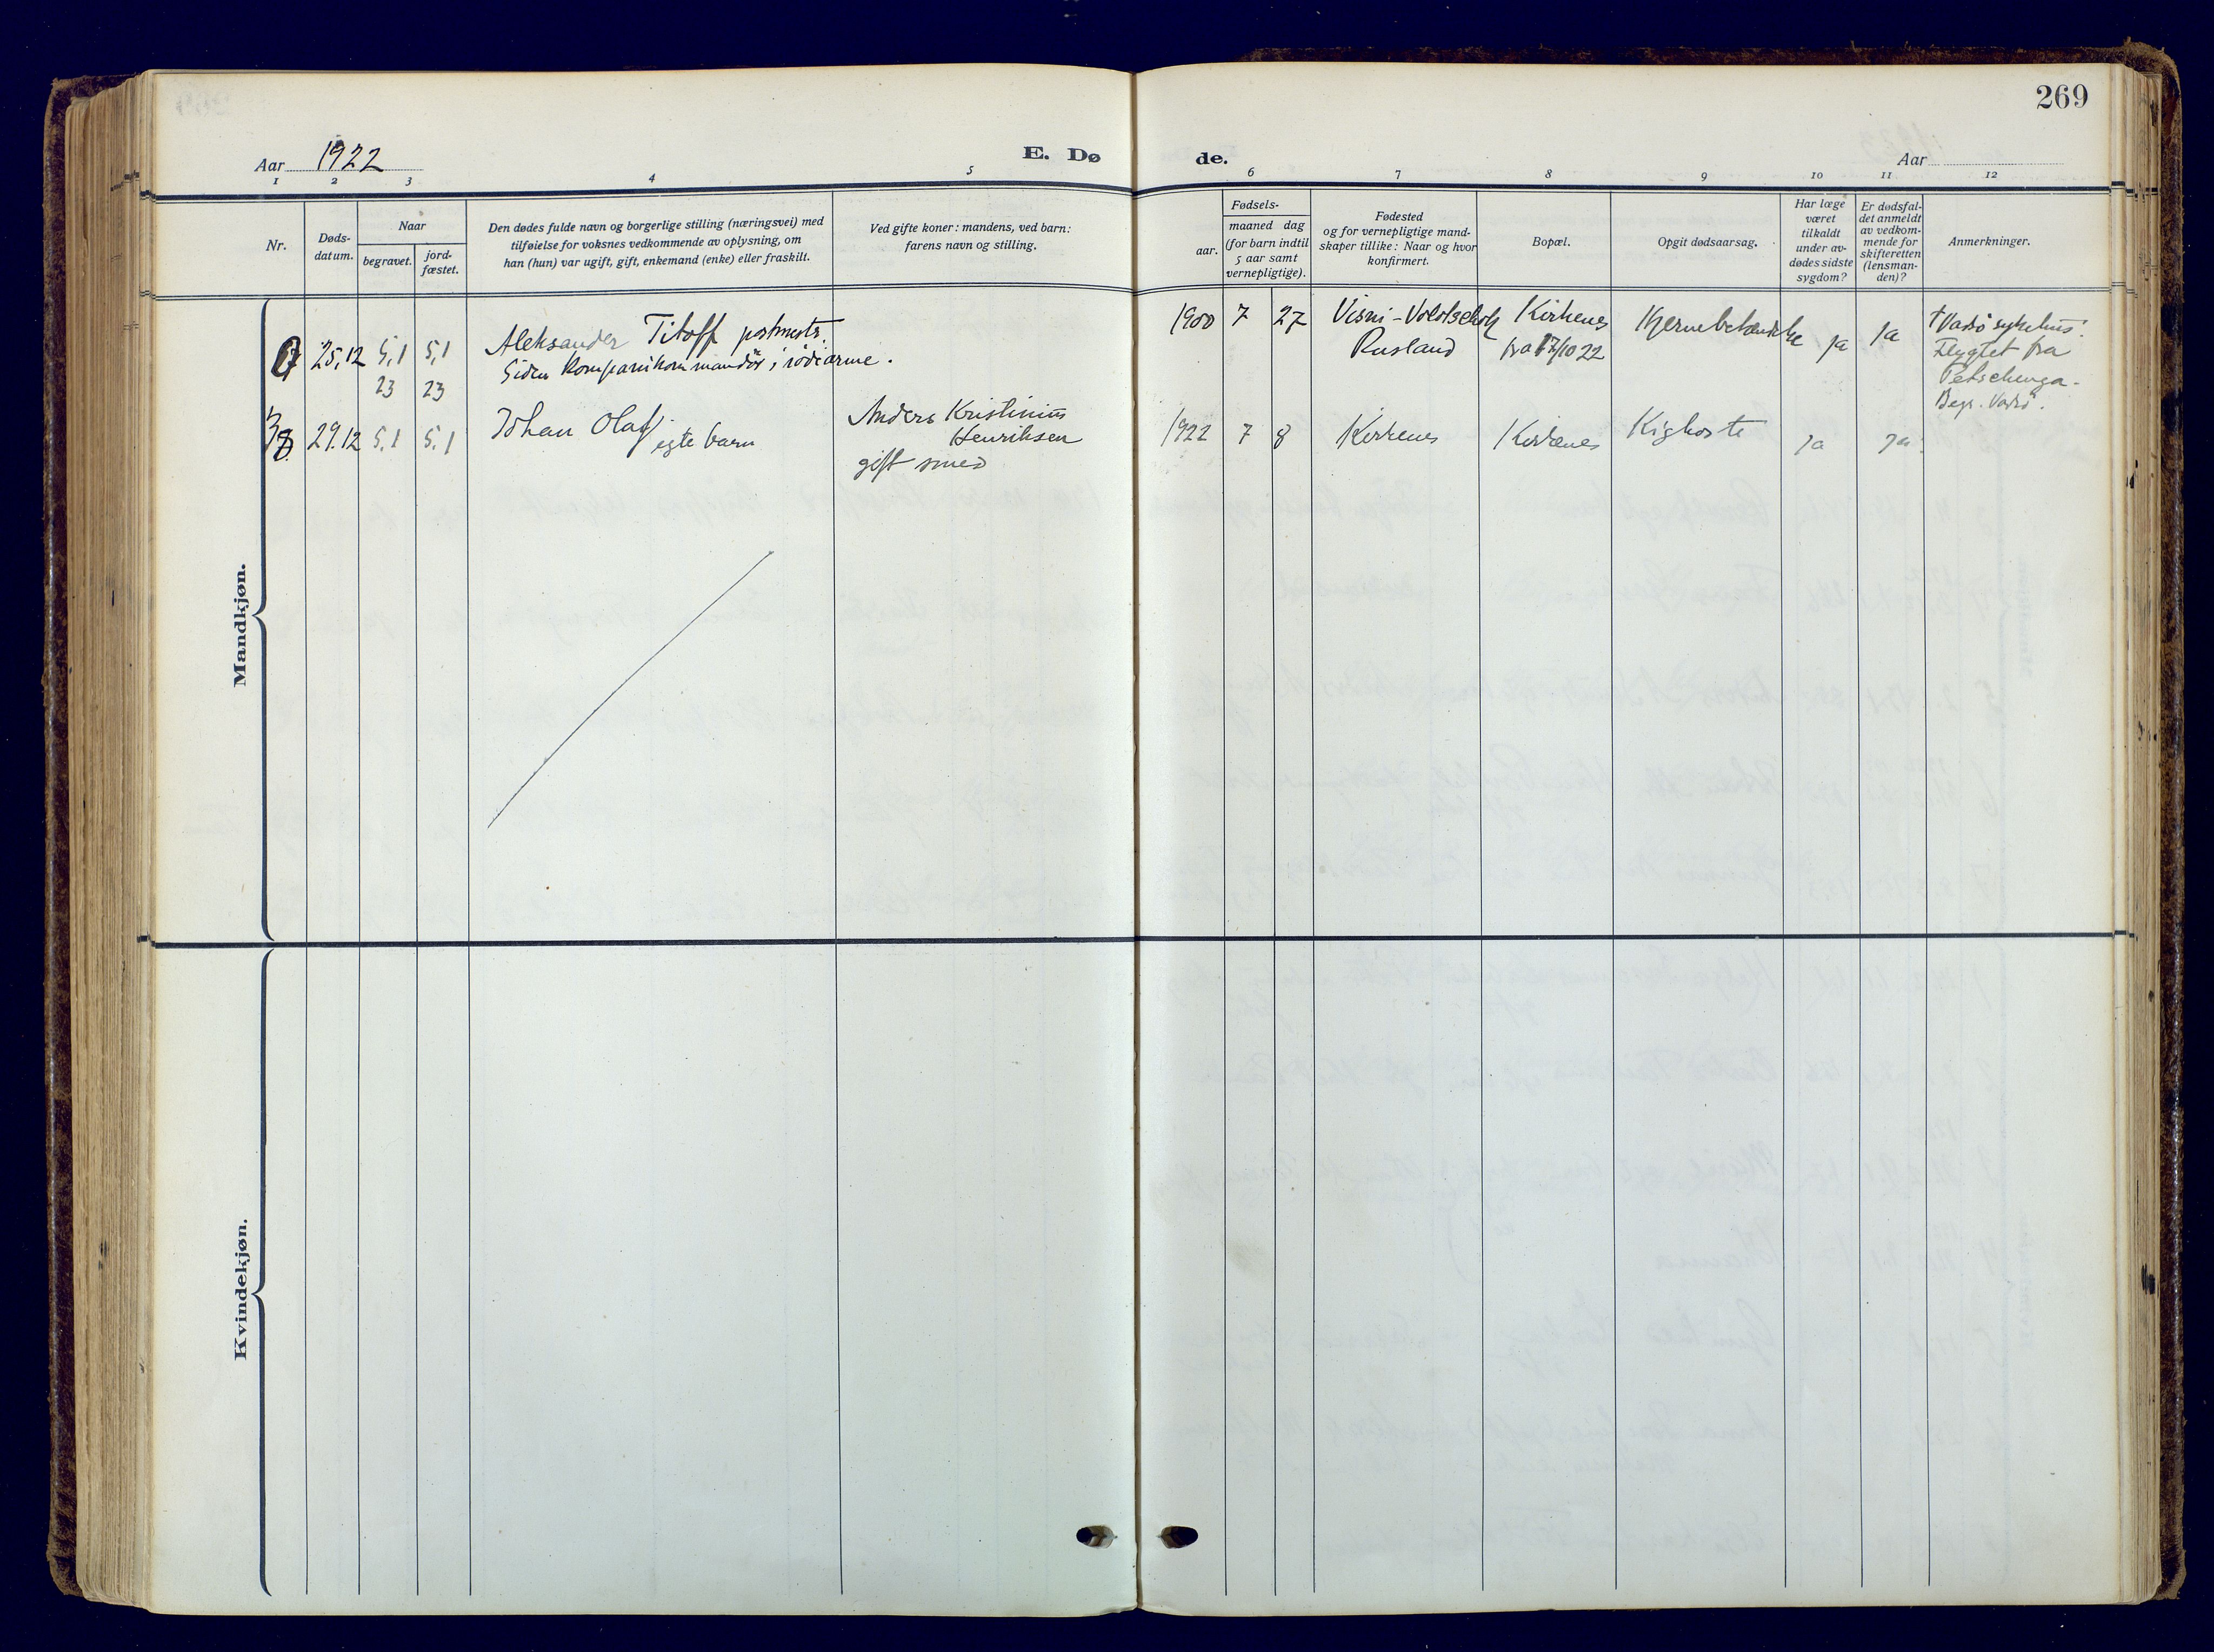 269
Aar 1922
E. Dø de.
Aar
1 2 3 4 5 6 7 8 9 10 11 12
Nr.
Døds-
datum.
Naar
begravet.
jord-
fæstet.
Den dødes fulde navn og borgerlige stilling (næringsvei) med
tilføielse for voksnes vedkommende av oplysning, om
han (hun) var ugift, gift, enkemand (enke) eller fraskilt.
Ved gifte koner: mandens, ved barn:
farens navn og stilling.
Fødsels-
aar.
maaned dag
(for barn indtil
5 aar samt
vernepligtige).
Fødested
og for vernepligtige mand-
skaper tillike: Naar og hvor
konfirmert.
Bopæl.
Opgit dødsaarsag.
Har læge
været
tilkaldt
under av-
dødes sidste
sygdom?
Er dødsfal-
det anmeldt
av vedkom-
mende for
skifteretten
(lensman-
den)?
Anmerkninger.
Mandkjøn.
25,12 5,1 23 5,1 23
Aleksander Titoff postmester.
Siden Kompanikommandör i röde arme.
1900 7 27
Visni-Volotschok
Rusland
Kirkenes
fra 17/10 22
Hjernebetændelse
ja
ja
† Vadsö sykehus.
Flygtet fra
Petschenga.
Begr. Vadsö.
8 29.12 5,1 5,1
Johan Olaf, egte barn
Anders Kristinius
Henriksen
gift smed
1922 7 8
Kirkenes
Kirkenes
Kighoste
ja
ja.
Kvindekjøn.